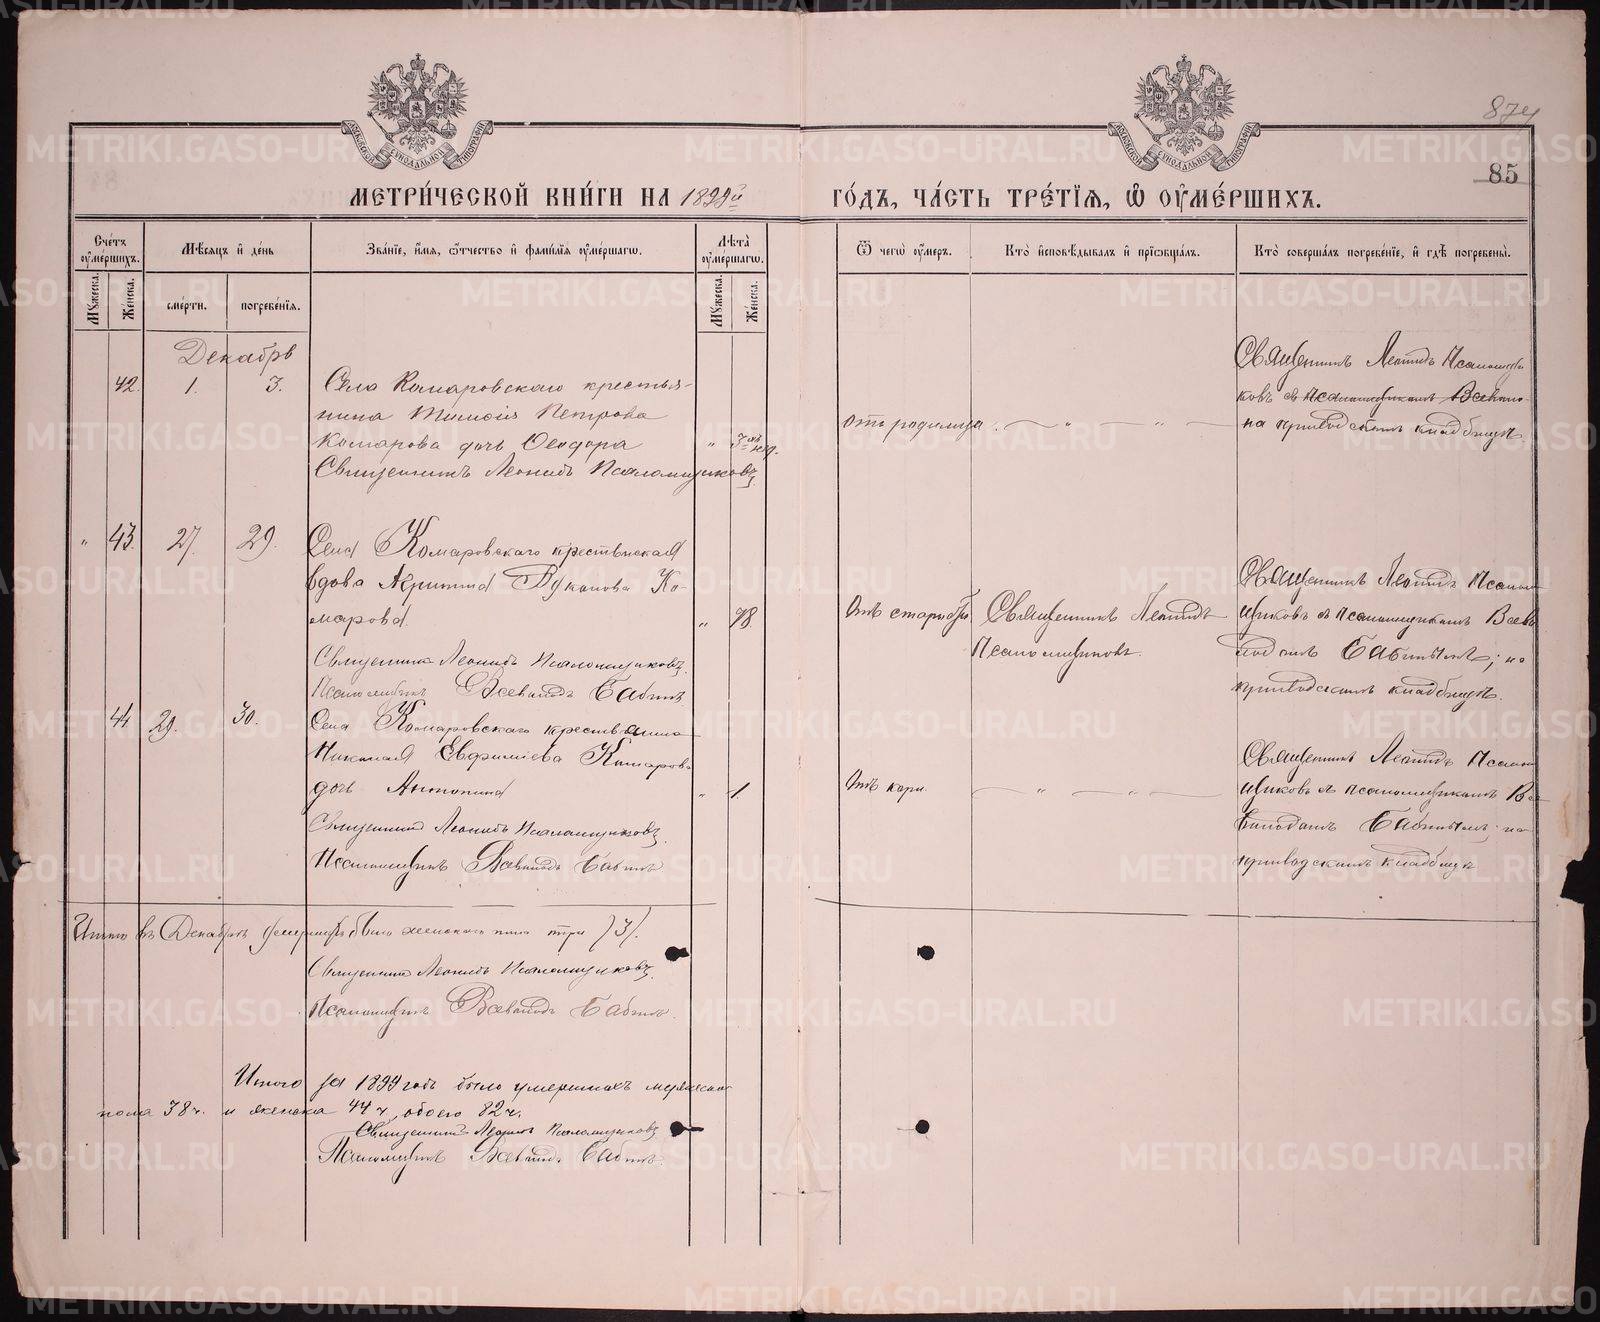 874
85
МЕТРИ́ЧЕСКОЙ КНИ́ГИ НА 1899й ГО́ДЪ, ЧА́СТЬ ТРЕ́ТІѦ, Ѡ҆ ОУ҆МЕ́РШИХЪ.
Сче́тъ оу҆ме́ршихъ.
Мꙋ́жеска.
Же́нска.
Мѣ́сѧцъ и҆ де́нь
сме́рти.
погребе́нїѧ.
Зва́нїе, и҆́мѧ, ѻ҆́тчество и҆ фами́лїѧ оу҆ме́ршагѡ.
Лѣ́та оу҆ме́ршагѡ.
Мꙋ́жеска.
Же́нска.
Ѿ чегѡ̀ оу҆́меръ.
Кто̀ и҆сповѣ́дывалъ и҆ прїѡбща́лъ.
Кто̀ соверша́лъ погребе́нїе, и҆ гдѣ̀ погребены̀.
Декабрь
42. 1. 3. Села Комаровскаго крестья-
нина Тимоѳія Петрова
Комарова дочь Ѳеодора
Священникъ Леонидъ Псаломщиковъ
" 3
отъ родимца
Священникъ Леонидъ Псаломщи
ковъ съ Псаломщикомъ
на приходскомъ кладбищѣ.
" 43. 27. 29. Села Комаровскаго крестьянская
вдова Акилина Ко-
марова.
" 78.
Священникъ Леонидъ Псаломщиковъ.
Псаломщикъ Всеволодъ Бабинъ
Отъ старости
Священникъ Леонидъ
Псаломщиковъ.
Священникъ Леонидъ Псалом
щиковъ съ Псаломщикомъ Всево
лодомъ Бабинымъ; на
приходскомъ кладбищѣ.
44 29. 30. Села Комаровскаго крестьянина
Николая Евфиміева Комарова
дочь Антонина
" 1.
Священникъ Леонидъ Псаломщиковъ.
Псаломщикъ Всеволодъ Бабинъ
Отъ кори.
Священникъ Леонидъ Псалом
щиковъ съ Псаломщикомъ Все
володомъ Бабинымъ; на
приходскомъ кладбищѣ
Итого въ Декабрѣ умершихъ было женскаго пола три (3).
Священникъ Леонидъ Псаломщиковъ.
Псаломщикъ Всеволодъ Бабинъ.
Итого за 1899 годъ было умершихъ мужеска
пола 38 ч. и женска 44 ч, обоего 82 ч.
Священникъ Леонидъ Псаломщиковъ
Псаломщикъ Всеволодъ Бабинъ.
METRIKI.GASO-URAL.RU